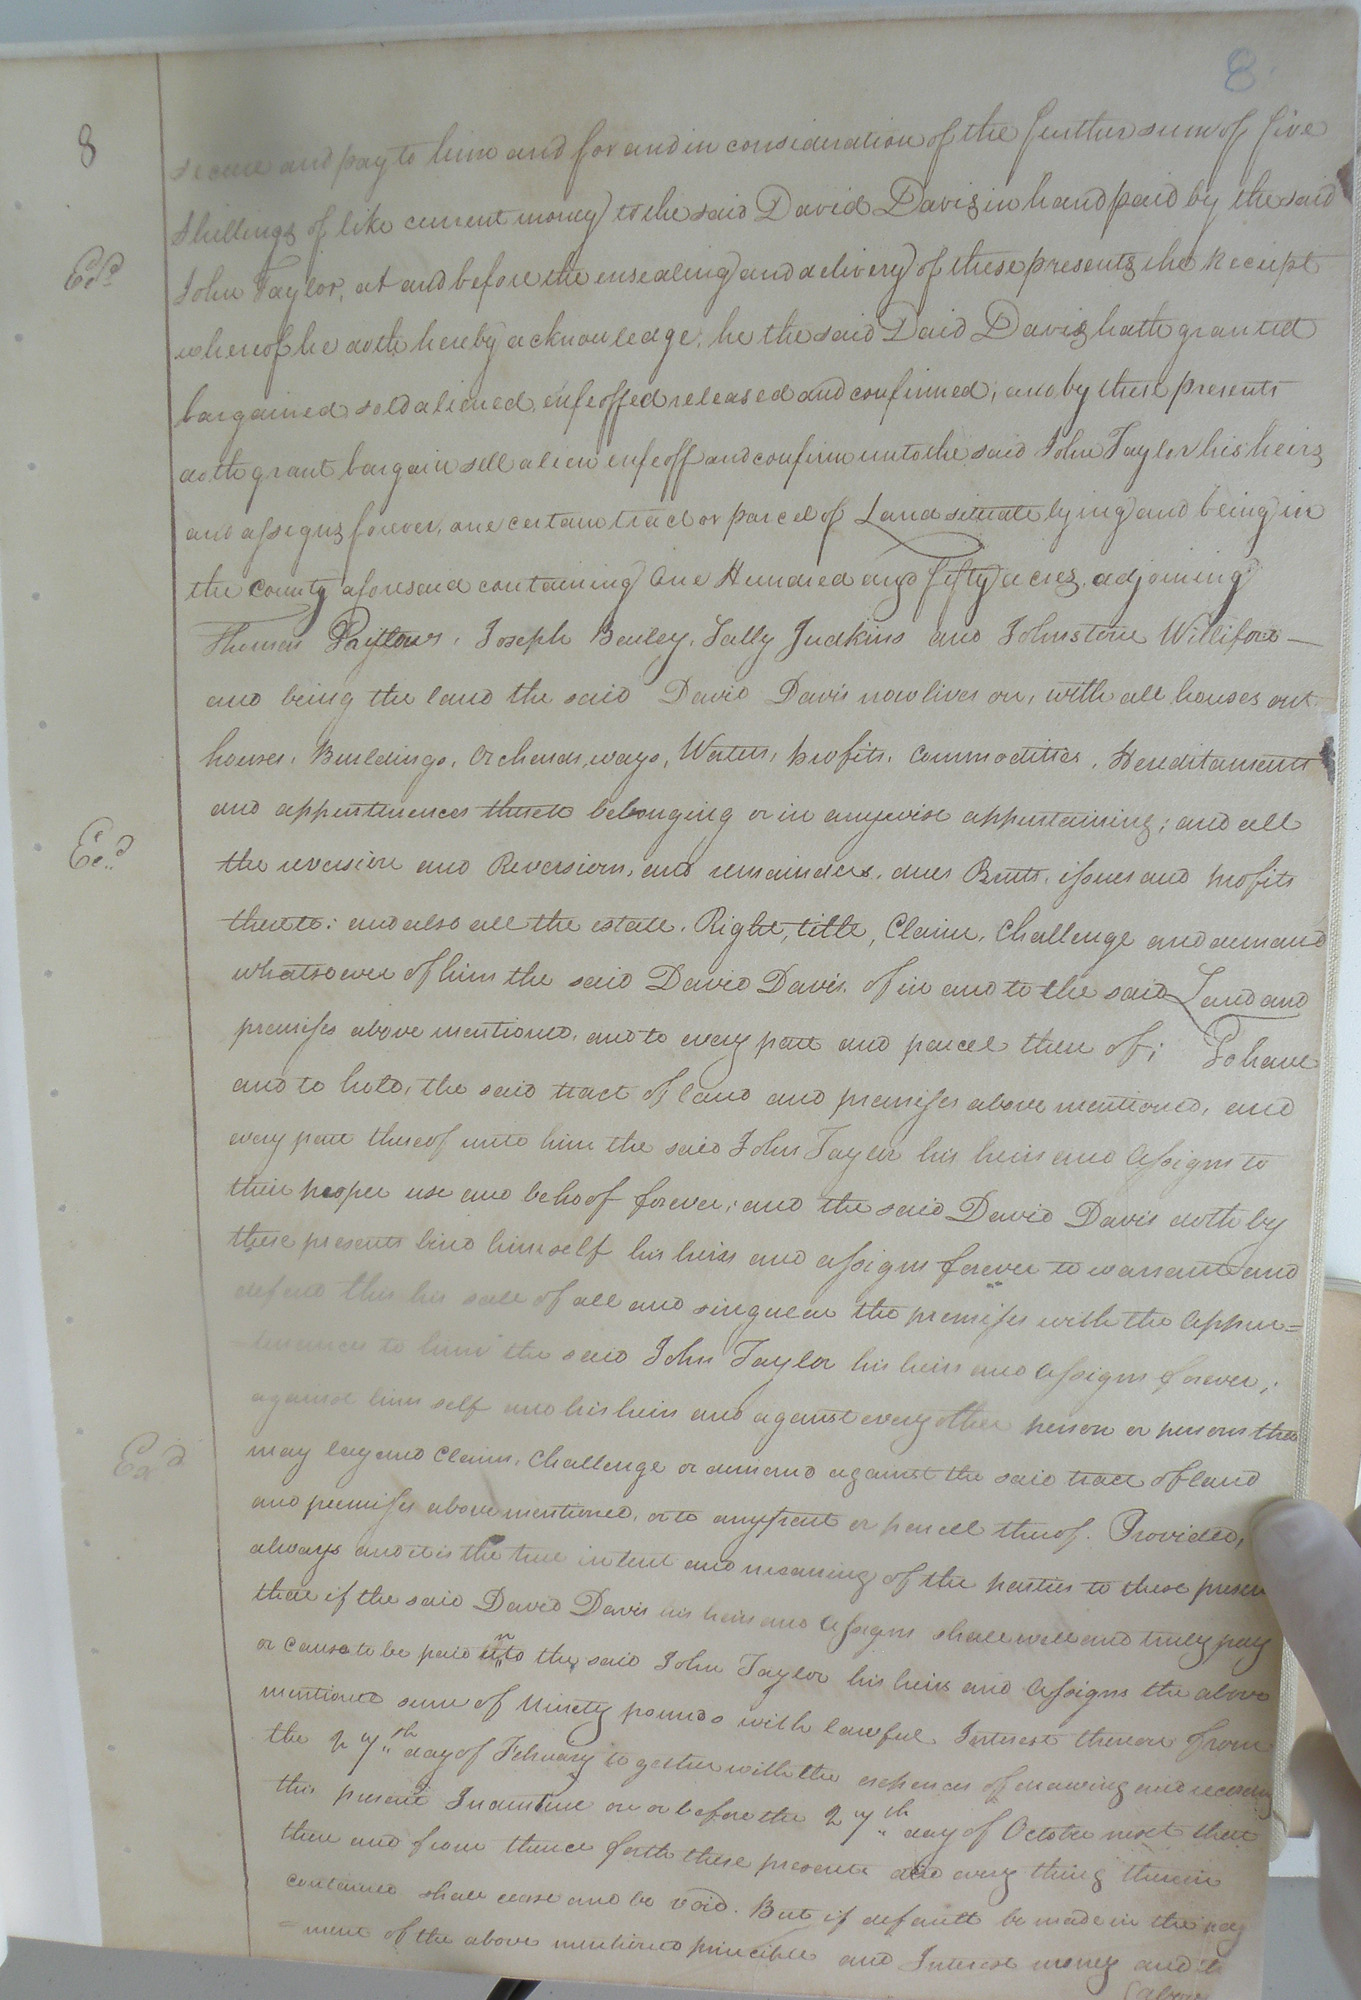 8
8
secure and pay to him and for and in consideration of the further sum of five
shillings of like current money to the said David Davis in hand paid by the said
John Taylor, at and before the ensealing and delivery of these presents the Receipt
whereof he doth hereby acknowledge, he the said Daid Davis hath granted
bargained sold aliened enfeoffed released and confirmed, and by these presents
doth grant bargain sell alien enfeoff and confirm unto the said John Taylor his heirs
and assigns forever, one certain tract or parcel of Land situate lying and being in
the County aforesaid containing One Hundred and fifty acres, adjoining
Thomas Joseph Bailey, Sally Judkins and Johnstone Williford
and being the land the said David Davis now lives on, with all houses out
houses, Buildings, Orchards, ways, Waters, profits, Commodities, Hereditaments
and appurtenances thereto belonging or in anywise appertaining; and all
the reversion and Reversions, and remainders, dues issues and profits
thereto: and also all the estate, Right, title, Claim, Challenge and demand
whatsoever of him the said David Davis, of in and to the said Land and
premises above mentioned, and to every part and parcel there of; To have
and to hold, the said tract of land and premises above mentioned, and
every part thereof unto him the said John Taylor his heirs and Assigns to
their proper use and behoof forever; and the said David Davis doth by
these presents bind himself his heirs and assigns forever to warrant and
defend this his sale of all and singular the premises with the Appur=
=tenances to him the said John Taylor his heirs and Assigns forever;
against himself and his heirs and against every other person or persons that
may lay and Claim, Challenge or demand against the said tract of land
and premises above mentioned, or to any part or parcell thereof. Provided,
always and it is the true intent and meaning of the parties to these presen
that if the said David Davis his heirs and Assigns shall well and truly pay
or cause to be paid unto the said John Taylor his heirs and Assigns the above
mentioned sum of Ninety pounds with lawful Interest thereon from
the 27th day of February together with the expences of drawing and recording
this present Indenture on or before the 27th day of October next then
then and from thence forth these presents and every thing therein
contained shall cease and be void. But if default be made in the pay
=ment of the above mentioned principle and Interest money and
(above